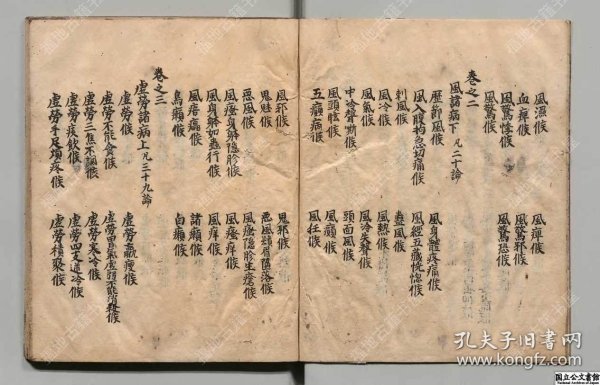 風濕候　風痺候
血痺候　風驚邪候
風驚悸候　風驚恐候
風驚候
卷之二
風諸病下 凡三十論
歷節風候　風身體疼痛候
風入腹拘急切痛候　風經五藏恍惚候
刺風候　蠱風候
風冷候　風熱候
風氣候　風冷失聲候
中冷聲嘶候　頭面風候
風頭眩候　風癲候
五癲病候　風狂候
風邪候　鬼邪候
鬼魅候　惡風鬚眉墮落候
惡風候　風瘙隱胗生瘡候
風瘙身體隱胗候　風瘙痒候
風身體如蟲行候　風痒候
風痦㿔候　諸癩候
烏癩候　白癩候
卷之三
虛勞諸病上 凡三十九論
虛勞候　虛勞羸瘦候
虛勞不能食候　虛勞胃氣虛弱不能消穀候
虛勞三焦不調候　虛勞寒冷候
虛勞痰飲候　虛勞四支逆冷候
虛勞手足煩疼候　虛勞積聚候
孔夫子旧书网
www.kongfz.com
国立公文書館
National Archives of Japan